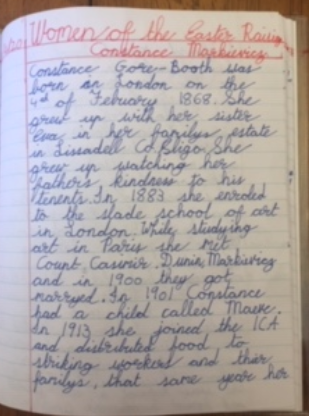 Women of the Easter Rising
Constance Markievicz
Constance Gore-Booth was
born in London on the
4th of February 1868. She
grew up with her sister
Eva in her familys estate
in Lissadell Co.Sligo. She
grew up watching her
father's kindness to his
tenents. In 1883 she enroled
to the slade school of art
in London. While studying
art in Paris she met
Count Casimir Dunin Markievicz
and in 1900 they got
marryed. In 1901 Constance
had a child called Maeve.
In 1913 she joined the ICA
and distributed food to
striking workers and thier
familys, that same year her